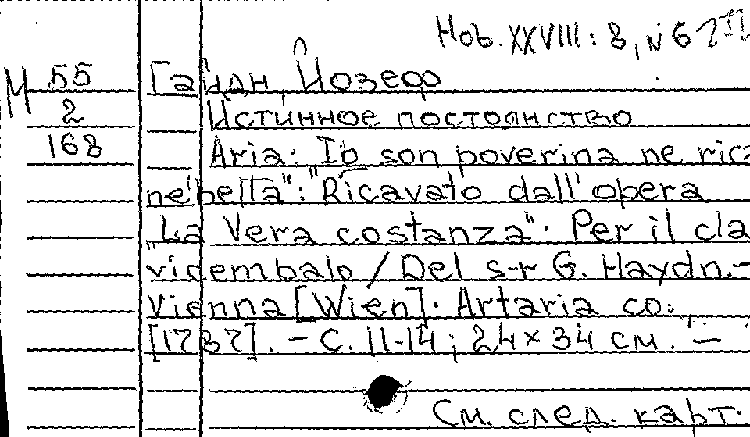 Hob. XXVIII: 8, N 6
М 55 Гайдн, Йозеф
2 Истинное постоянство
168 Aria: Io son poverina ne rica
ne bella": "Ricavato dall'opera
"La Vera costanza". Per il cla
vicembalo / Del s-r G. Haydn.-
Vienna [Wien]. Artaria co.,
[1787]. - С. 11-14; 24x34 см. -
См. след. карт.